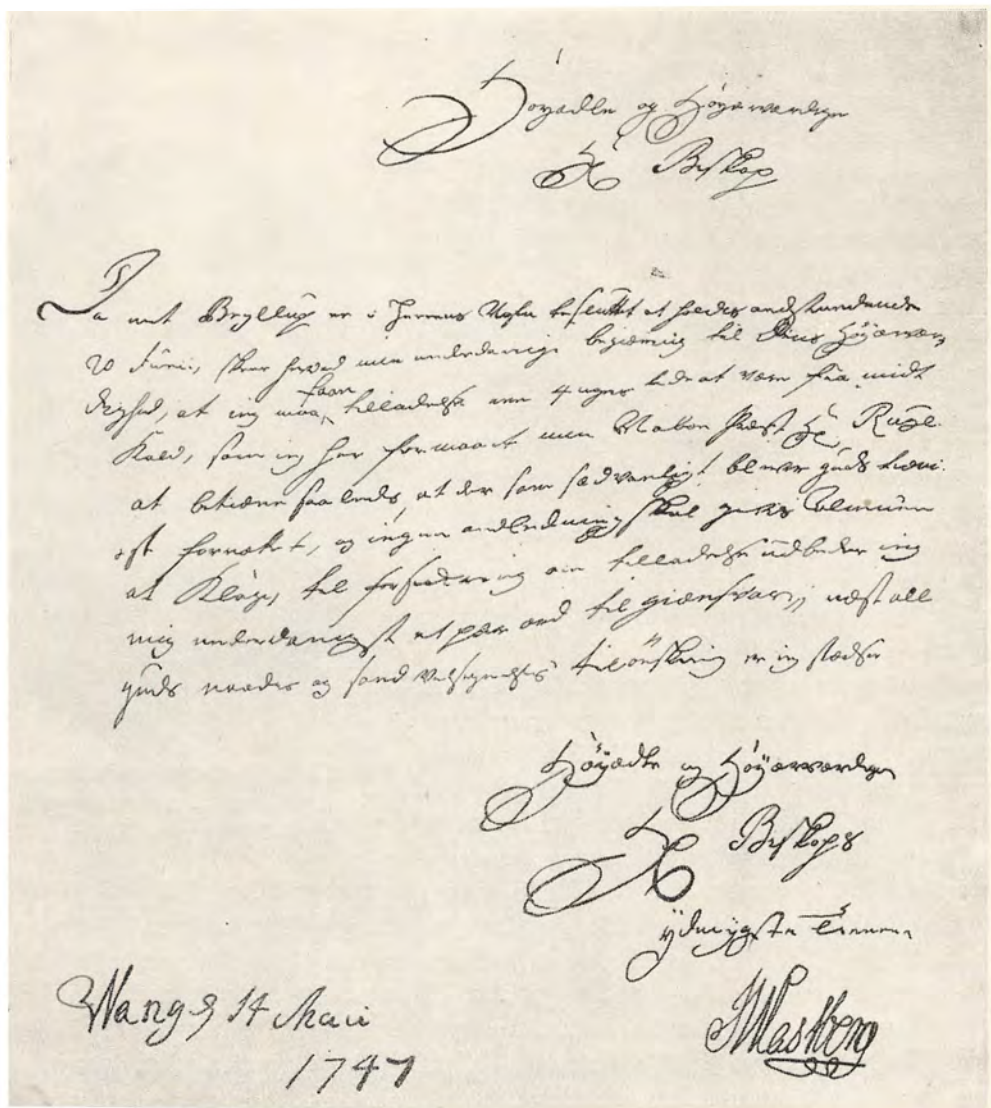 Höyædle og Höyærværdige
Hr Biskop
Da mit Bryllup er i Herrens Nafn besluttet at holdes anstundende
20 Junii, skeer herved min underdanige begiæring til Deris Höyærvær,
dighed, at ieg maa faae tilladelse een 4 uger tid at være fra mit
Kald, som ieg har formaaet min Nabo Præst Hr Ruge
at betiene saaledes, at der som sædvanligt bliver Guds tieni,
ste forrættet, og ingen anledning skal gives Almuen
at Klage, til forsickring om tilladelse udbeder ieg
mig underdanigst et par ord til giensvar, næst all
Guds naades og sand Velsignelses tilönskning er ieg stædse
Höyædle og Höyærværdige
Hr Biskops
ydmygste Tienere
Wang d 14 Maii
1747